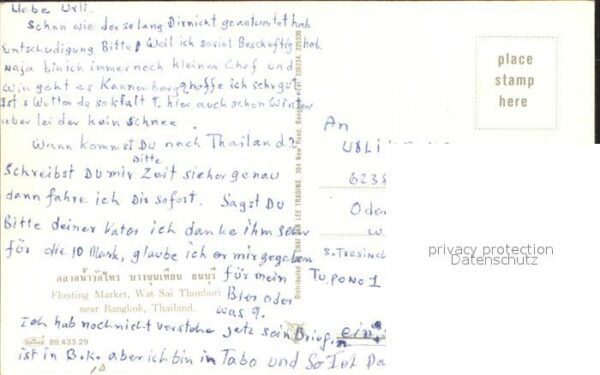 Liebe Urli.
Schon wieder so lang Dir nicht geantwortet hab
Entschudigung Bitte! Weil ich soviel Beschoftig hab.
naja bin ich immer noch kleiner Chef und
Wie geht es Kannenberg hoffe ich sehr gut
Ist s Wetter da so kalt ? hier auch schon Winter
aber leider kein schnee.
Wann kommst Du nach Thailand?
Bitte
Schreibst Du mir Zeit sicher genau
dann fahre ich Dir sofort. Sagst Du
Bitte deiner Vater ich danke ihm sehr
für die 10 Mark, glaube ich er mir gegeben
für mein
Bier oder
was ?.
Ich hab noch nicht verstehe jetz sein Brief,
ist in B.K. aber ich bin in Tabo und So Ist Da
ตลาดน้ำวัดไทร บางขุนเทียน ธนบุรี
Floating Market, Wat Sai Thonburi
near Bangkok, Thailand.
89.433.29
Distributed by LEE TRADING, 394 New Road, Bangkok Tel. 226234, 225336
place
stamp
here
An
Urli
6238
Oder
privacy protection
Datenschutz